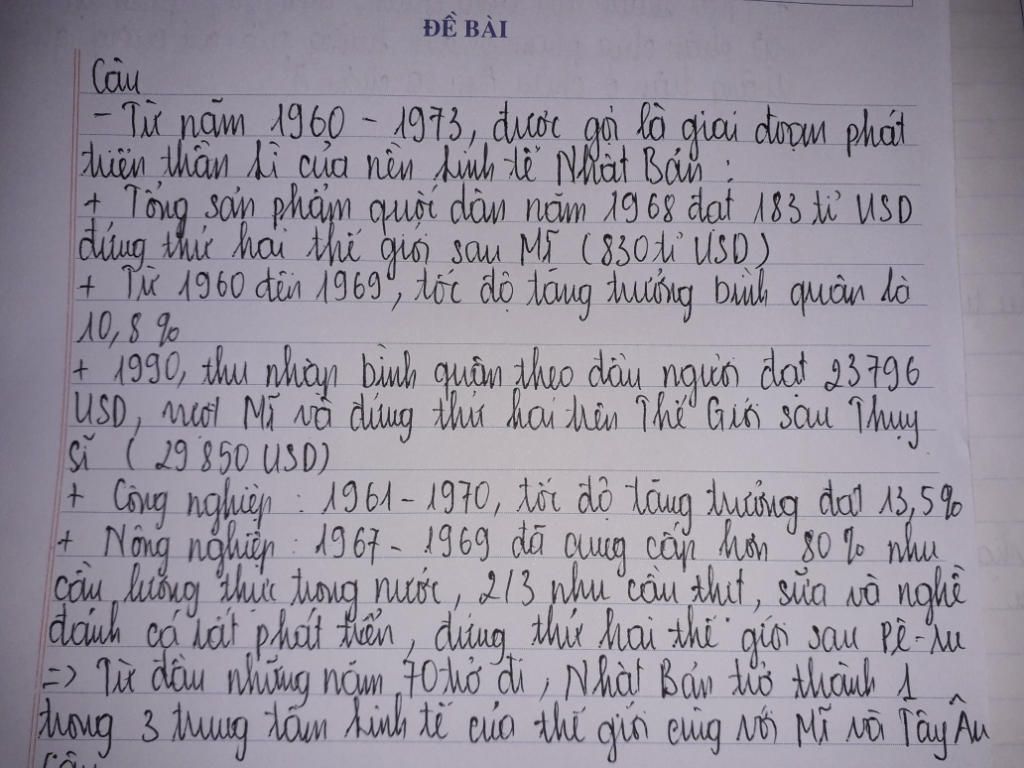 ĐỀ BÀI
Câu
- Từ năm 1960 - 1973, được gọi là giai đoạn phát
triển thần kì của nền kinh tế Nhật Bản :
+ Tổng sản phẩm quốc dân năm 1968 đạt 183 tỉ USD
đứng thứ hai thế giới sau Mĩ (830 tỉ USD)
+ Từ 1960 đến 1969, tốc độ tăng trưởng bình quân là
10,8 %
+ 1990, thu nhập bình quân theo đầu người đạt 23796
USD, vượt Mĩ và đứng thứ hai trên Thế Giới sau Thụy
Sĩ ( 29 850 USD)
+ Công nghiệp : 1961 - 1970, tốc độ tăng trưởng đạt 13,5%
+ Nông nghiệp : 1967 - 1969 đã cung cấp hơn 80 % nhu
cầu lương thực trong nước, 2/3 nhu cầu thịt, sữa và nghề
đánh cá rất phát triển, đứng thứ hai thế giới sau Pê-ru
=> Từ đầu những năm 70 trở đi, Nhật Bản trở thành 1
trong 3 trung tâm kinh tế của thế giới cùng với Mĩ và Tây Âu
Câu